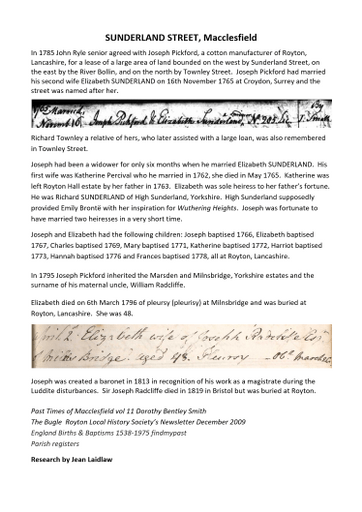 SUNDERLAND STREET, Macclesfield
In 1785 John Ryle senior agreed with Joseph Pickford, a cotton manufacturer of Royton,
Lancashire, for a lease of a large area of land bounded on the west by Sunderland Street, on
the east by the River Bollin, and on the north by Townley Street. Joseph Pickford had married
his second wife Elizabeth SUNDERLAND on 16th November 1765 at Croydon, Surrey and the
street was named after her.
Joseph Pickford & Elizabeth Sunderland N° 205 By
Richard Townley a relative of hers, who later assisted with a large loan, was also remembered
in Townley Street.
Joseph had been a widower for only six months when he married Elizabeth SUNDERLAND. His
first wife was Katherine Percival who he married in 1762, she died in May 1765. Katherine was
left Royton Hall estate by her father in 1763. Elizabeth was sole heiress to her father's fortune.
He was Richard SUNDERLAND of High Sunderland, Yorkshire. High Sunderland supposedly
provided Emily Brontë with her inspiration for Wuthering Heights. Joseph was fortunate to
have married two heiresses in a very short time.
Joseph and Elizabeth had the following children: Joseph baptised 1766, Elizabeth baptised
1767, Charles baptised 1769, Mary baptised 1771, Katherine baptised 1772, Harriot baptised
1773, Hannah baptised 1776 and Frances baptised 1778, all at Royton, Lancashire.
In 1795 Joseph Pickford inherited the Marsden and Milnsbridge, Yorkshire estates and the
surname of his maternal uncle, William Radcliffe.
Elizabeth died on 6th March 1796 of pleursy (pleurisy) at Milnsbridge and was buried at
Royton, Lancashire. She was 48.
Elizabeth wife of Joseph Radcliffe Esq.
Bridge. aged 48. Pleursy
Joseph was created a baronet in 1813 in recognition of his work as a magistrate during the
Luddite disturbances. Sir Joseph Radcliffe died in 1819 in Bristol but was buried at Royton.
Past Times of Macclesfield vol 11 Dorothy Bentley Smith
The Bugle Royton Local History Society's Newsletter December 2009
England Births & Baptisms 1538-1975 findmypast
Parish registers
Research by Jean Laidlaw